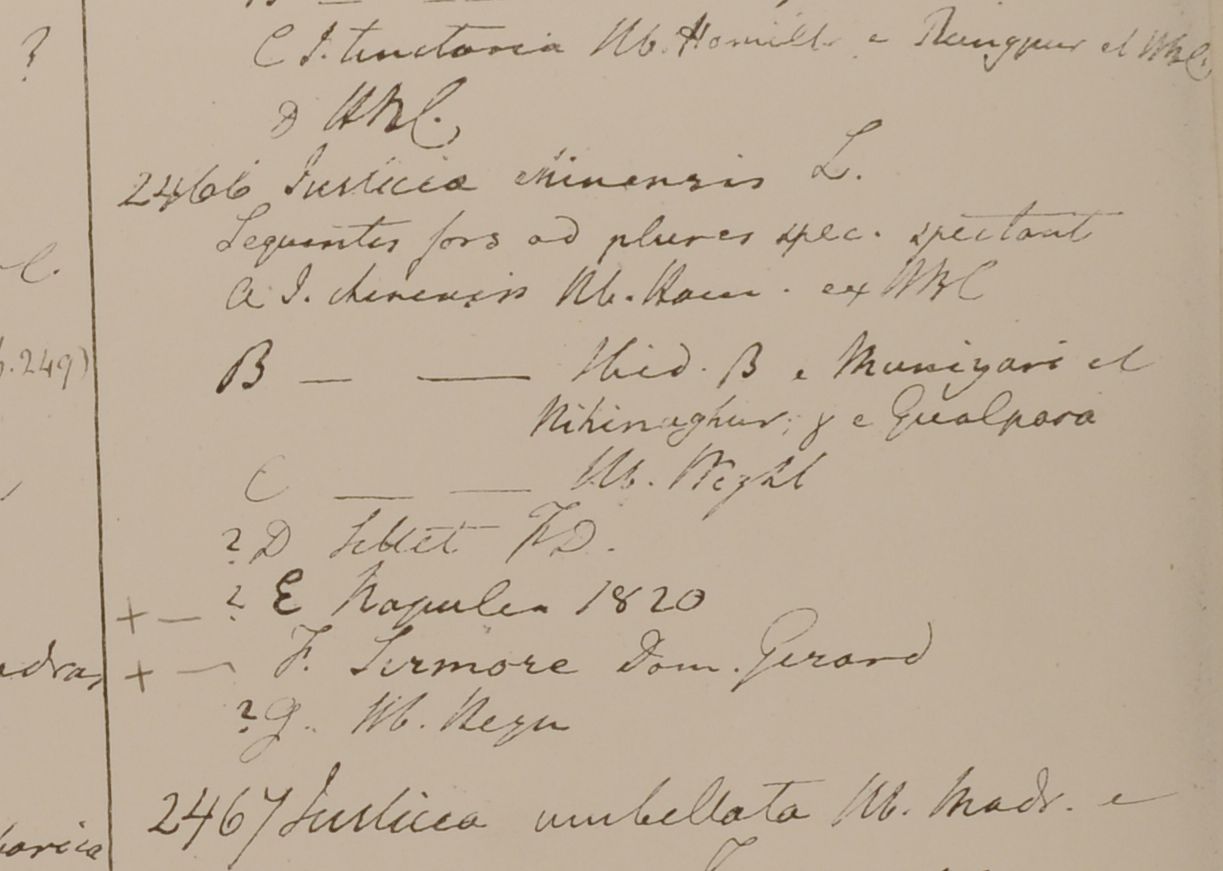 ?
C J. tinctoria Hb. Hamilt. e Rungpur et HBC.
D HBC.
2466 Justicia chinensis L.
Sequentes fors ad plures spec. spectant
l.
A J. chinensis Hb. Ham. ex HBC
249)
B — — Ibid. B e Muniyari et
Nihinaghur; γ e Gualpara
C — — Hb. Wight
? D Sillet FD.
+ — ? E Napulea 1820
+ — F. Sirmore Dom. Gerard
adras
? G. Hb. Heyn
2467 Justicia umbellata Hb. Madr. e